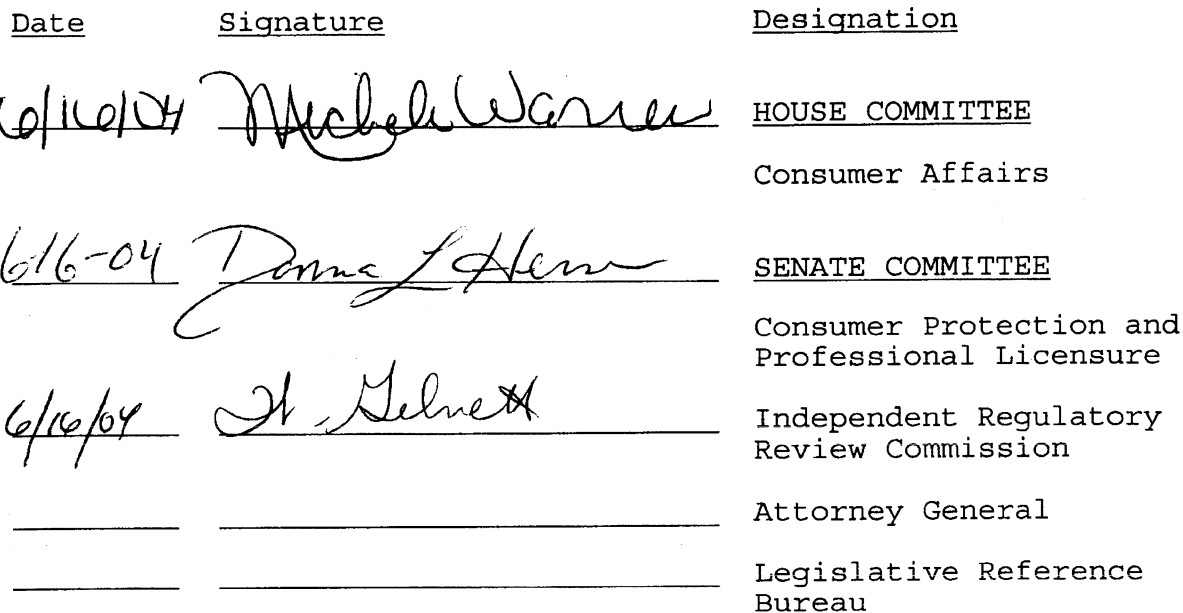 Date Signature Designation
6/16/04 Michele Warren HOUSE COMMITTEE
Consumer Affairs
6-16-04 Donna L SENATE COMMITTEE
Consumer Protection and
Professional Licensure
6/16/04 Independent Regulatory
Review Commission
Attorney General
Legislative Reference
Bureau